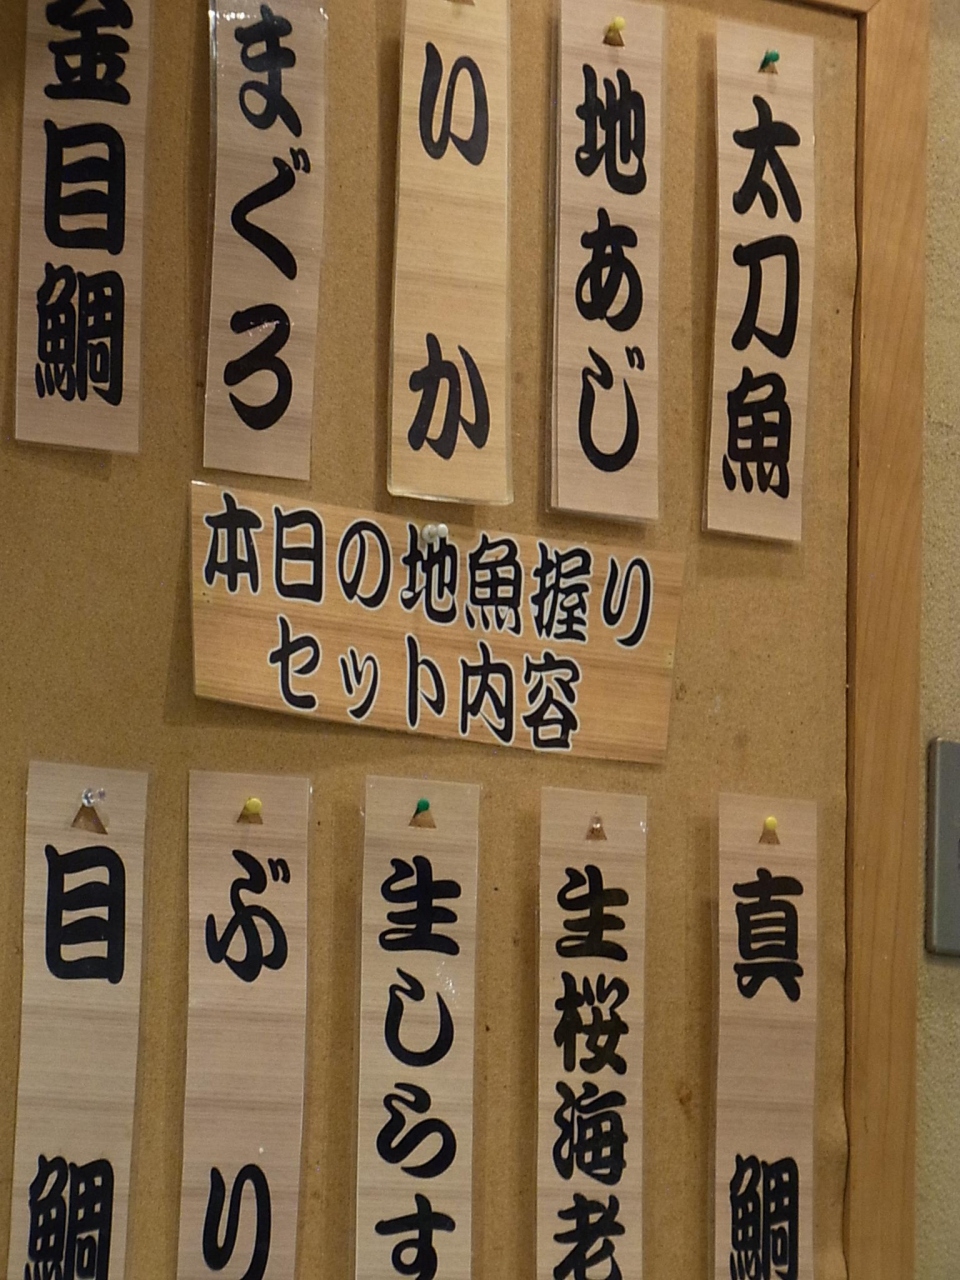 太刀魚
地あじ
いか
まぐろ
金目鯛
本日の地魚握り
セット内容
真鯛
生桜海老
生しらす
ぶり
目鯛